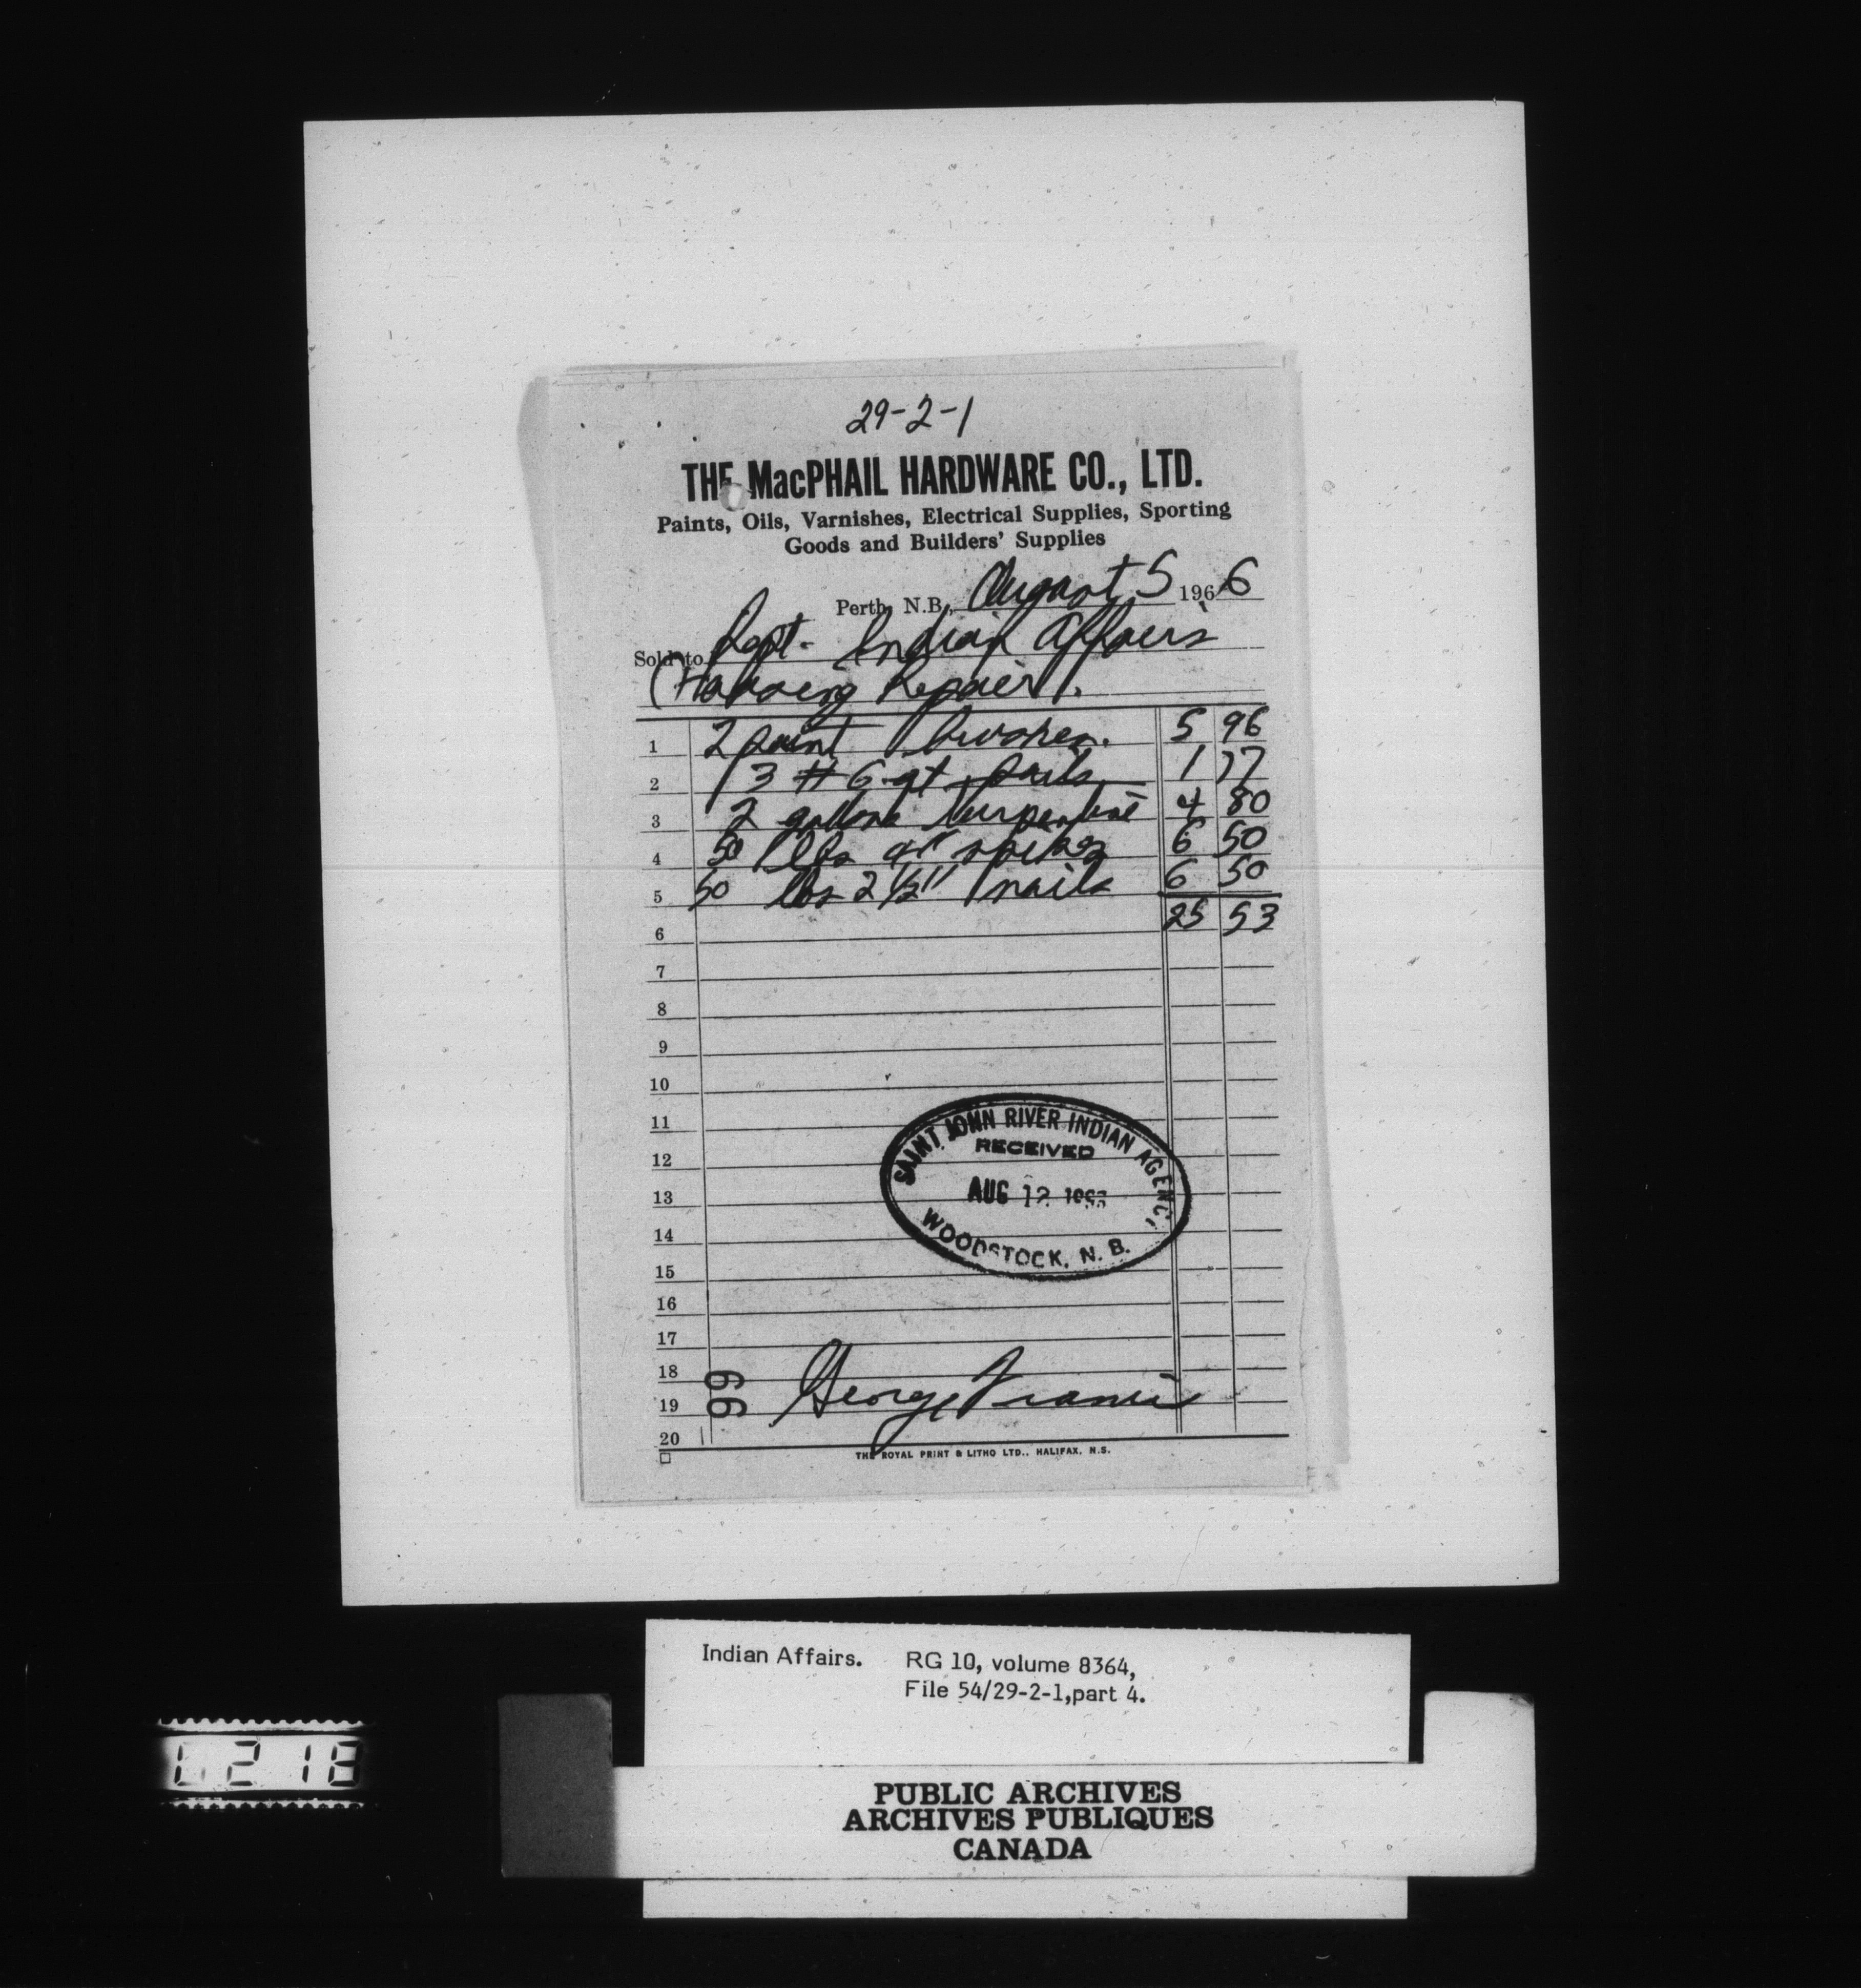 29-2-1
THE MacPHAIL HARDWARE CO., LTD.
Paints, Oils, Varnishes, Electrical Supplies, Sporting
Goods and Builders' Supplies
Perth, N.B., August 5 1966
Sold to Dept. Indian Affairs
(Housing Repair).
1 2 paint brushes. 5 96
2 3 # 6 qt pails 1 77
3 2 gallons turpentine 4 80
4 50 lbs 4" spikes 6 50
5 50 lbs 2 1/2" nails 6 50
6 25 53
7
8
9
10
11
12
13
14
15
16
17
18
19
20
SAINT JOHN RIVER INDIAN AGENCY
RECEIVED
AUG 12
WOODSTOCK, N. B.
99
George Francis
THE ROYAL PRINT & LITHO LTD., HALIFAX, N.S.
Indian Affairs. RG 10, volume 8364,
File 54/29-2-1,part 4.
0218
PUBLIC ARCHIVES
ARCHIVES PUBLIQUES
CANADA